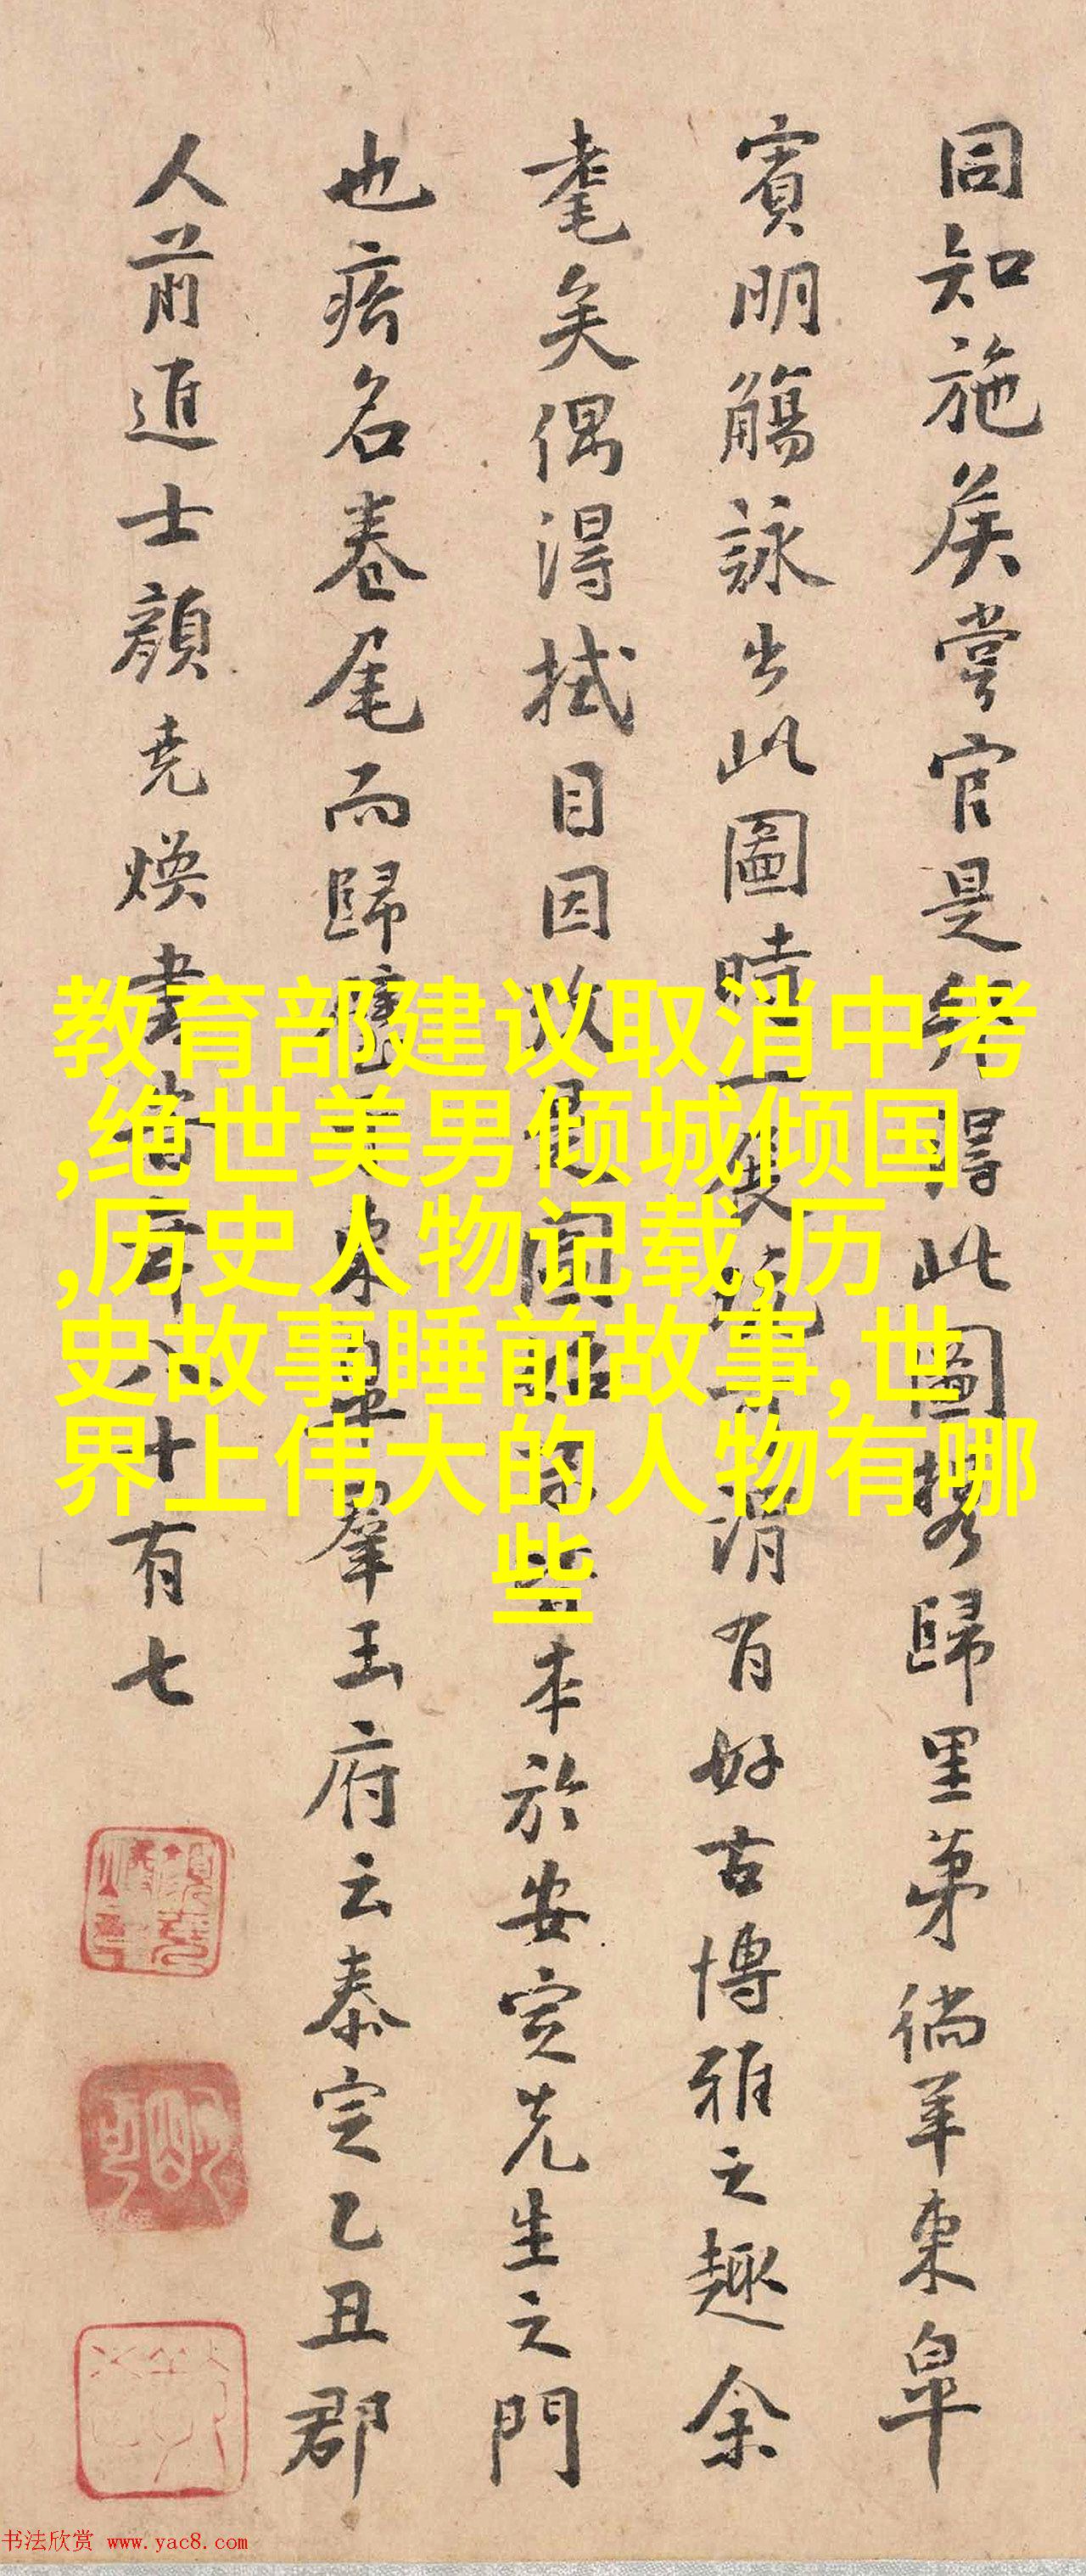 同知施矦嘗官是州得此圖携歸里苐徜羊東皐
賓明觴詠出此圖時一展玩可謂有好古博雅之趣余
耄矣偶得拭目因攷是圖
本於安定先生之門
也瘩名卷尾而歸
東皐羣玉府云泰定乙丑郡
人前進士顔堯煥書
八十有七
教育部建议取消中考
,绝世美男倾城倾国
,历史人物记载,历
史故事睡前故事,世
界上伟大的人物有哪
些
书法欣赏 www.yac8.com